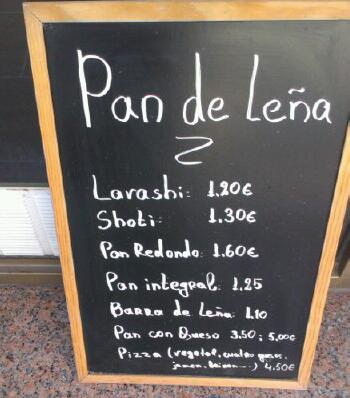 Pan de Leña
Lavashi: 1.20€
Shoti: 1.30€
Pan Redondo: 1.60€
Pan integral: 1.25
Barra de Leña: 1.10
Pan con Queso 3.50; 5.00€
Pizza (vegetal, cuatro quesos,
jamon, ...) 4.50€